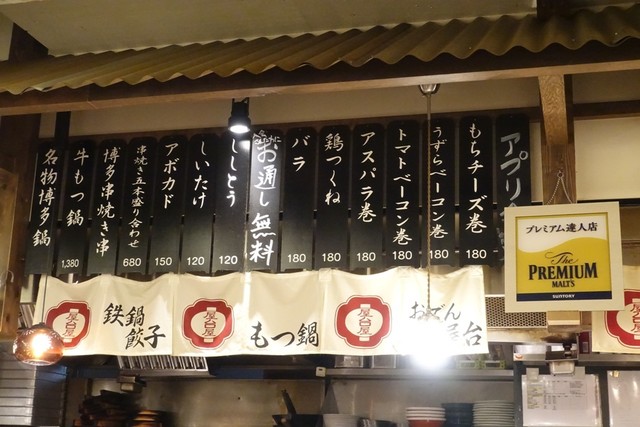 名物博多鍋
牛もつ鍋
1,380
博多串焼き串
串焼き五本盛り合わせ
680
アボカド
150
しいたけ
120
ししとう
120
お通し無料
バラ
180
鶏つくね
180
アスパラ巻
180
トマトベーコン巻
180
うずらベーコン巻
180
もちチーズ巻
180
アプリ
プレミアム達人店
The
PREMIUM
MALT'S
SUNTORY
屋台屋
鉄鍋
餃子
屋台屋
もつ鍋
屋台屋
おでん
屋台